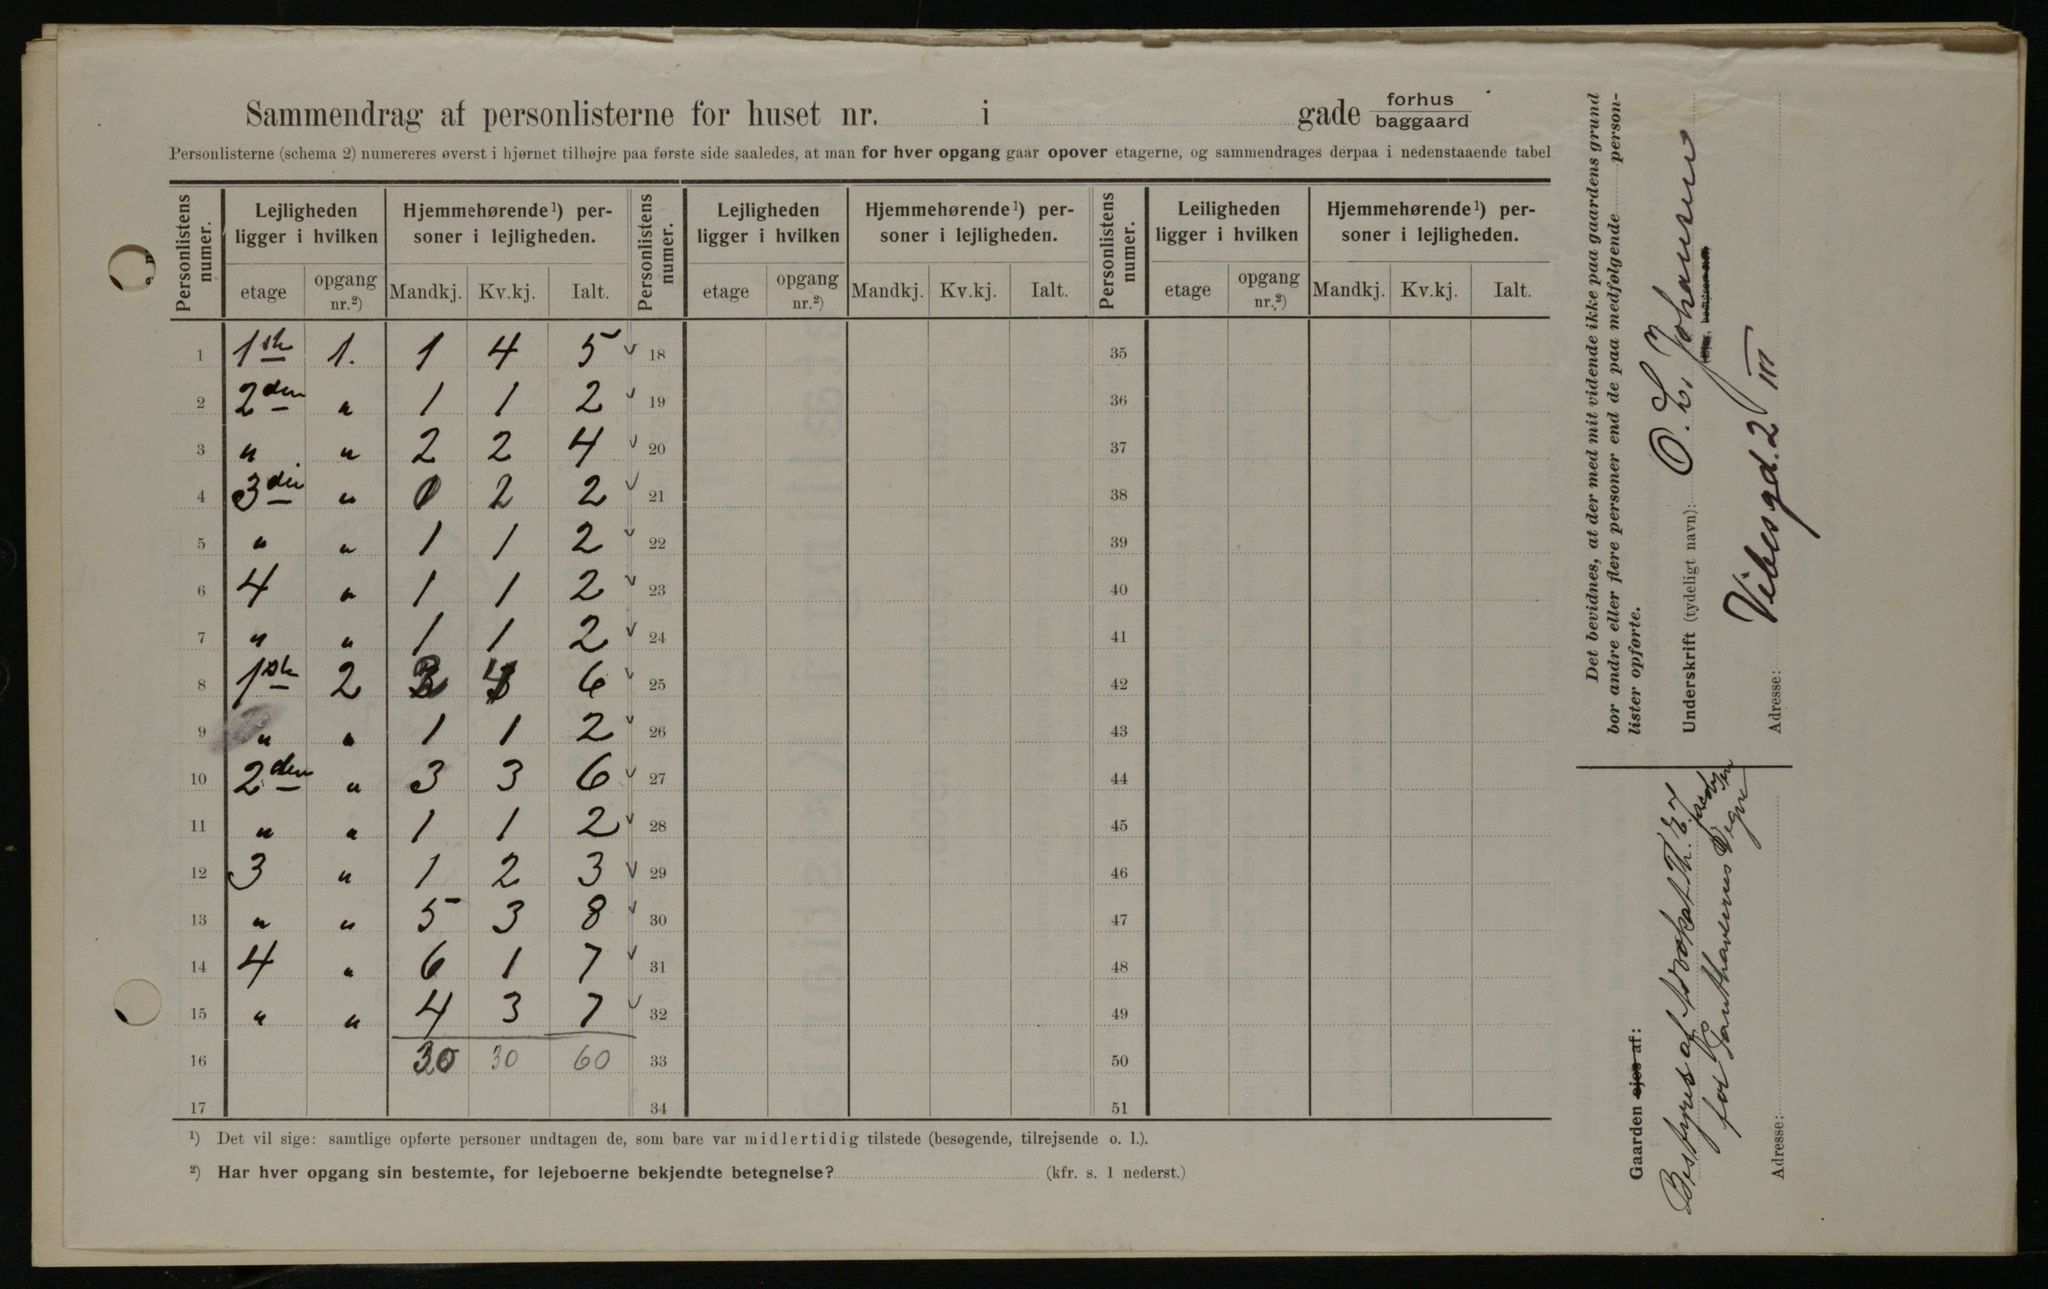 Sammendrag af personlisterne for huset nr. i gade forhus baggaard
Personlisterne (schema 2) numereres øverst i hjørnet tilhøjre paa første side saaledes, at man for hver opgang gaar opover etagerne, og sammendrages derpaa i nedenstaaende tabel
Personlistens numer. Lejligheden ligger i hvilken Hjemmehørende¹) personer i lejligheden. Personlistens numer. Lejligheden ligger i hvilken Hjemmehørende¹) personer i lejligheden. Personlistens numer. Leiligheden ligger i hvilken Hjemmehørende¹) personer i lejligheden.
etage opgang nr.²) Mandkj. Kv.kj. Ialt. etage opgang nr.²) Mandkj. Kv.kj. Ialt. etage opgang nr.²) Mandkj. Kv.kj. Ialt.
1 1ste 1. 1 4 5 18 35
2 2den " 1 1 2 19 36
3 " " 2 2 4 20 37
4 3die " 0 2 2 21 38
5 " " 1 1 2 22 39
6 4 " 1 1 2 23 40
7 " " 1 1 2 24 41
8 1ste 2 6 25 42
9 " " 1 1 2 26 43
10 2den " 3 3 6 27 44
11 " " 1 1 2 28 45
12 3 " 1 2 3 29 46
13 " " 5 3 8 30 47
14 4 " 6 1 7 31 48
15 " " 4 3 7 32 49
16 30 30 60 33 50
17 34 51
¹) Det vil sige: samtlige opførte personer undtagen de, som bare var midlertidig tilstede (besøgende, tilrejsende o. l.).
²) Har hver opgang sin bestemte, for lejeboerne bekjendte betegnelse? (kfr. s. 1 nederst.)
Det bevidnes, at der med mit vidende ikke paa gaardens grund
bor andre eller flere personer end de paa medfølgende person-
lister opførte.
Underskrift (tydeligt navn): O. L. Johansen
Adresse: Vibesgd. 2 III
Gaarden ejes af:
Bestyres af advokat Th.
for
Adresse: